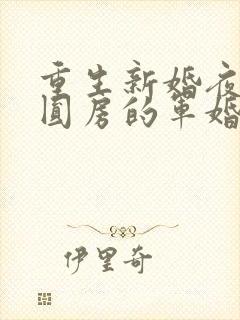 重生新婚夜
圆房的军婚
伊里奇